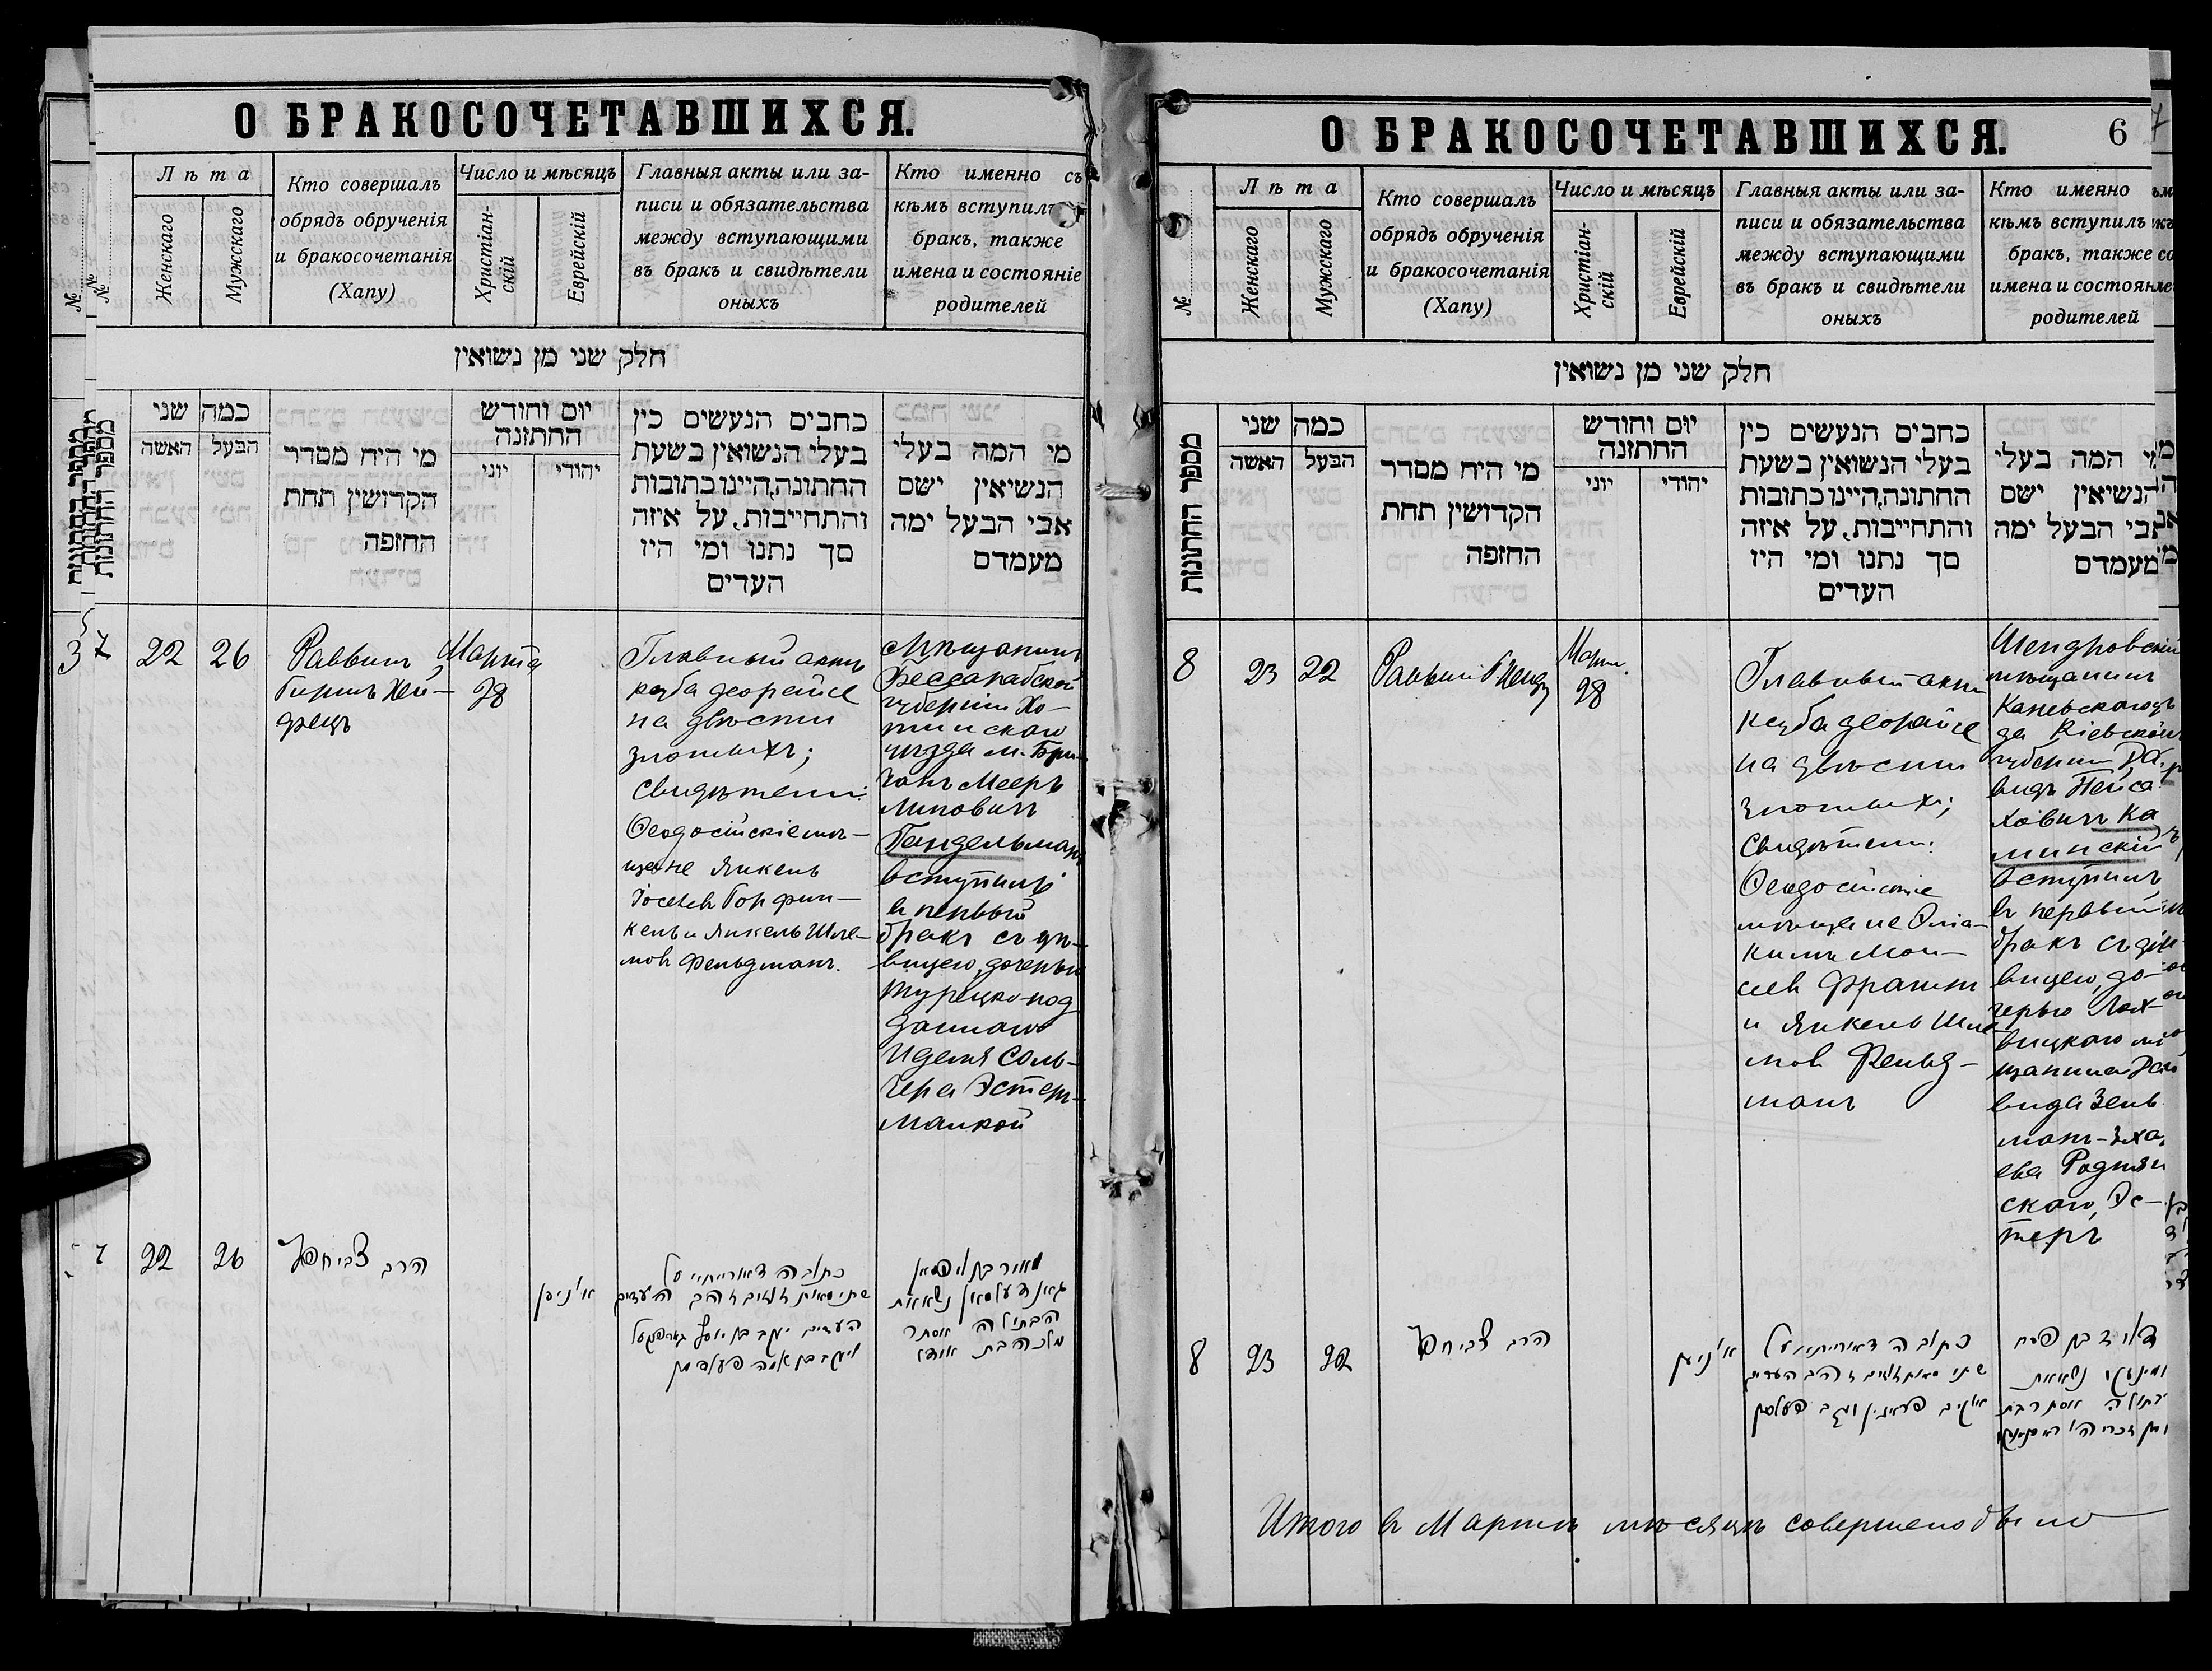 О БРАКОСОЧЕТАВШИХСЯ.
№
№
Лѣта
Женскаго
Мужскаго
Кто совершалъ
обрядъ обрученія
и бракосочетанія
(Хапу)
Число и мѣсяцъ
Христіан-
скій
Еврейскій
Главныя акты или за-
писи и обязательства
между вступающими
въ бракъ и свидѣтели
оныхъ
Кто именно съ
кѣмъ вступилъ
бракъ, также
имена и состояніе
родителей
חלק שני מן נשואין
מספר החתונות
כמה שני
האשה
הבעל
מי היח מסדר
הקדושין תחת
החופה
יום וחודש
החתונה
יוני
יהודי
כחבים הנעשים כין
בעלי הנשואין בשעת
החתונה,היינו כתובות
והתחייבות, על איזה
סך נתנו ומי היו
העדים
מי המה בעלי
הנשיאין ישם
אבי הבעל ימה
מעמדם
3
7
22
26
Раввинъ
Гиршъ Хей-
фецъ
Марта
28
Главный актъ
кзуба деорайсе
на двѣсти
злотыхъ;
Свидѣтели:
Ѳеодосійскіе мѣ-
щане Янкель
Іосевъ Горфин-
кель и Янкель Шле-
мовъ Фельдманъ.
Мѣщанинъ
Бессарабской
губерніи Хо-
тинскаго
уѣзда м. Бри-
чанъ Мееръ
Липовичъ
Гандельманъ
вступилъ
въ первый
бракъ съ дѣ-
вицею, дочерью
Турецко-под
даннаго
Иделя Соль-
чера Эстеръ-
Малкой
7
22
26
הרב צבי חפץ
א' ניסן
כתובה דאורייתיי על
שתי מאות זהובים
העדים יעקב בן יוסף
מאיר בן ליפמאן
גאנדעלמאן נשאות
הבתולה אסתר
מלכה בת
О БРАКОСОЧЕТАВШИХСЯ.
6
№
Лѣта
Женскаго
Мужскаго
Кто совершалъ
обрядъ обрученія
и бракосочетанія
(Хапу)
Число и мѣсяцъ
Христіан-
скій
Еврейскій
Главныя акты или за-
писи и обязательства
между вступающими
въ бракъ и свидѣтели
оныхъ
Кто именно
кѣмъ вступилъ
бракъ, также
имена и состояніе
родителей
חלק שני מן נשואין
מספר החתונות
כמה שני
האשה
הבעל
מי היח מסדר
הקדושין תחת
החופה
יום וחודש
החתונה
יוני
יהודי
כחבים הנעשים כין
בעלי הנשואין בשעת
החתונה,היינו כתובות
והתחייבות, על איזה
סך נתנו ומי היו
העדים
מי המה בעלי
הנשיאין ישם
אבי הבעל ימה
מעמדם
8
23
22
Раввинъ Г Хейфецъ
Марта
28
Главный актъ
кзуба деорайсе
на двѣсти
злотыхъ;
Свидѣтели:
Ѳеодосійскіе
мѣщане Эліа-
кимъ Мои-
сеевъ
и Янкель Шле
мовъ Фельд-
манъ
Шендровскій
мѣщанинъ
Каневскаго уѣз
да Кіевской
губерніи Да-
видъ Пейса
ховичъ Ка
минскій
вступилъ
въ первый
бракъ съ дѣ-
вицею, до-
черью Лох-
вицкаго мѣ
щанина Да
вида Зель
манъ-Зха
ева Родзян
скаго, Эс-
теръ
8
23
22
הרב צבי חפץ
א' ניסן
כתובה דאורייתיי על
שתי מאות זהובים
דוד בן פסח
נשאות
בתולה אסתר בת
Итого въ Мартѣ мѣсяцѣ совершено было